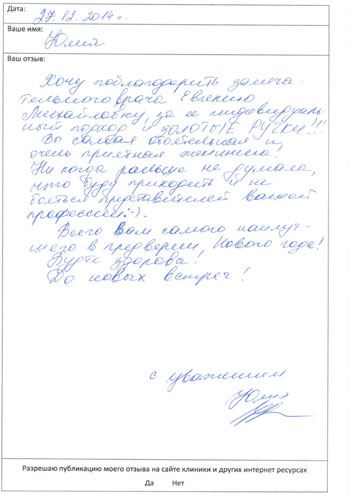 Дата: 27.12.2014 г.
Ваше имя:
Юлия
Ваш отзыв:
Хочу поблагодарить замеча-
тельного врача Евгению
Михайловну, за ее индивидуаль-
ный подход и ЗОЛОТЫЕ РУЧКИ!!!
Вы самая обаятельная и
очень приятная женщина!
Ни когда раньше не думала,
что буду приходить и не
бояться представителей вашей
профессии :-).
Всего Вам самого наилуч-
шего в предверии Нового года!
Будте здоровы!
До новых встреч!
с уважением
Юлия
Разрешаю публикацию моего отзыва на сайте клиники и других интернет ресурсах
Да Нет